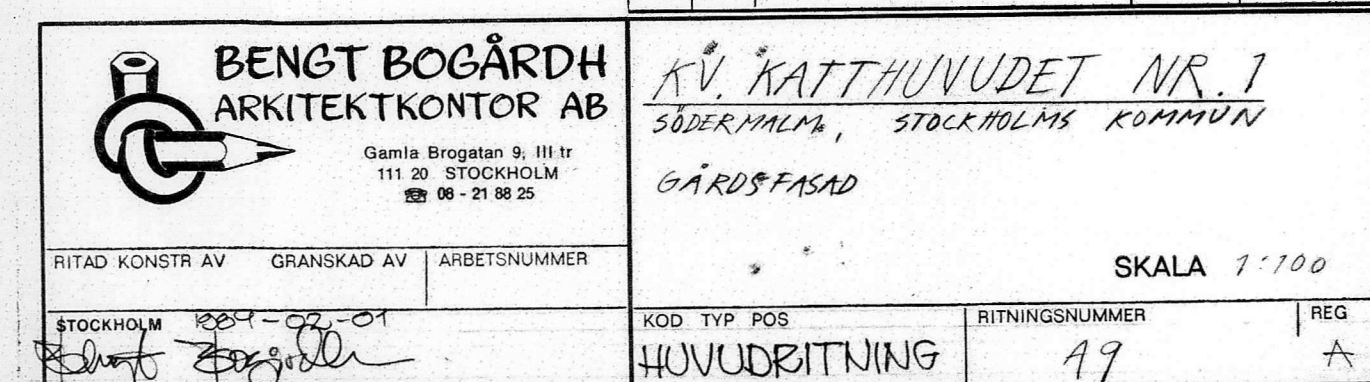 BENGT BOGÅRDH
ARKITEKTKONTOR AB
Gamla Brogatan 9, III tr
111 20 STOCKHOLM
☎ 08 - 21 88 25
RITAD KONSTR AV GRANSKAD AV ARBETSNUMMER
STOCKHOLM 1984-02-01
Bengt Bogårdh
KV. KATTHUVUDET NR. 1
SÖDERMALM, STOCKHOLMS KOMMUN
GÅRDSFASAD
SKALA 1:100
KOD TYP POS RITNINGSNUMMER REG
HUVUDRITNING A9 A